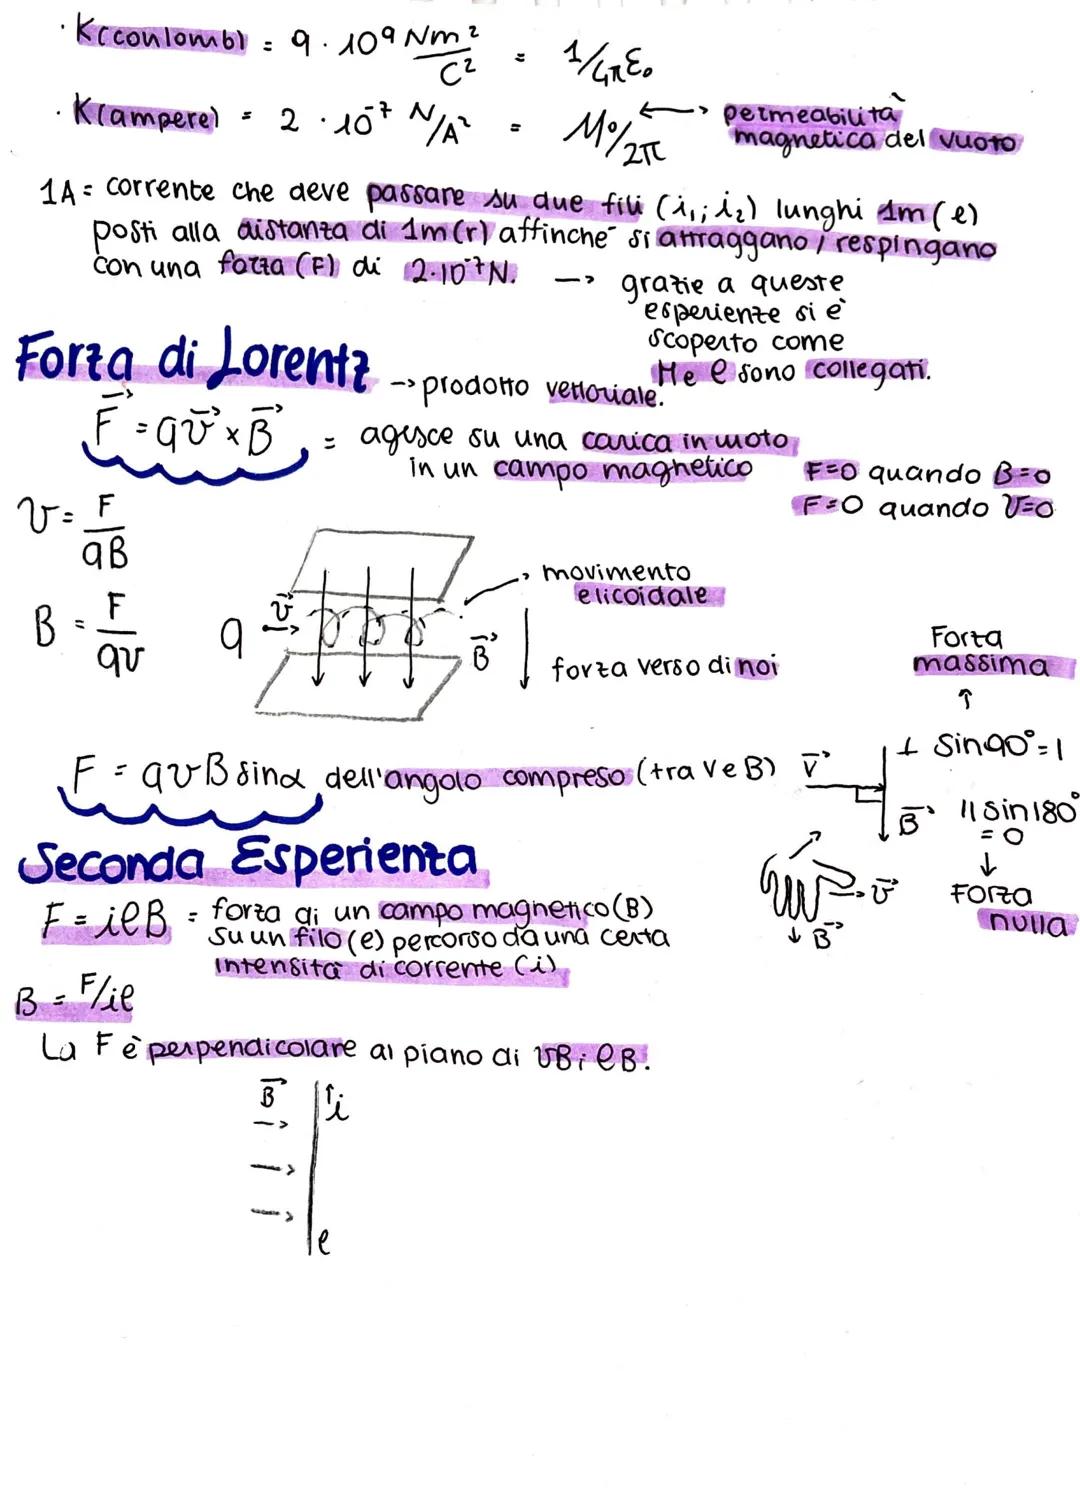 · K(coulomb) = 9 · 10⁹ Nm²/C² = 1/4πε₀
· K(ampere) = 2 · 10⁻⁷ N/A² = μ₀/2π ← → permeabilità
magnetica del vuoto
1A = corrente che deve passare su due fili (i₁; i₂) lunghi 1m (l)
posti alla distanza di 1m (r) affinchè si attraggano / respingano
con una forza (F) di 2·10⁻⁷N. → grazie a queste
esperienze si è
scoperto come
M e E sono collegati.
Forza di Lorentz → prodotto vettoriale.
F = qv × B = agisce su una carica in moto
in un campo magnetico
F=0 quando B=0
F=0 quando V=0
v = F/qB
B = F/qv
q v
B
movimento
elicoidale
forza verso di noi
Forza
massima
↑
⊥ Sin90°=1
F = qvB sinα dell'angolo compreso (tra V e B)
V
B
|| Sin180°
= 0
↓
Forza
nulla
v
B
Seconda Esperienza
F = ilB = forza di un campo magnetico (B)
su un filo (l) percorso da una certa
intensità di corrente (i)
B = F/il
La F è perpendicolare al piano di vB; lB.
B
i
l